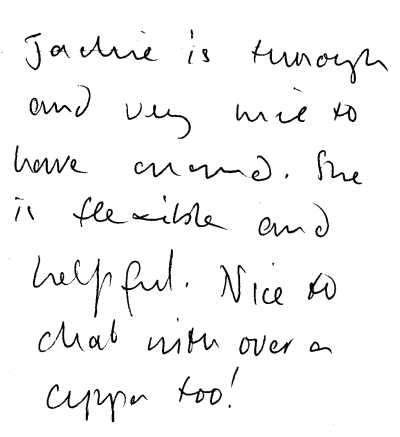 Jackie is thorough
and very nice to
have around. She
is flexible and
helpful. Nice to
chat with over a
cuppa too!